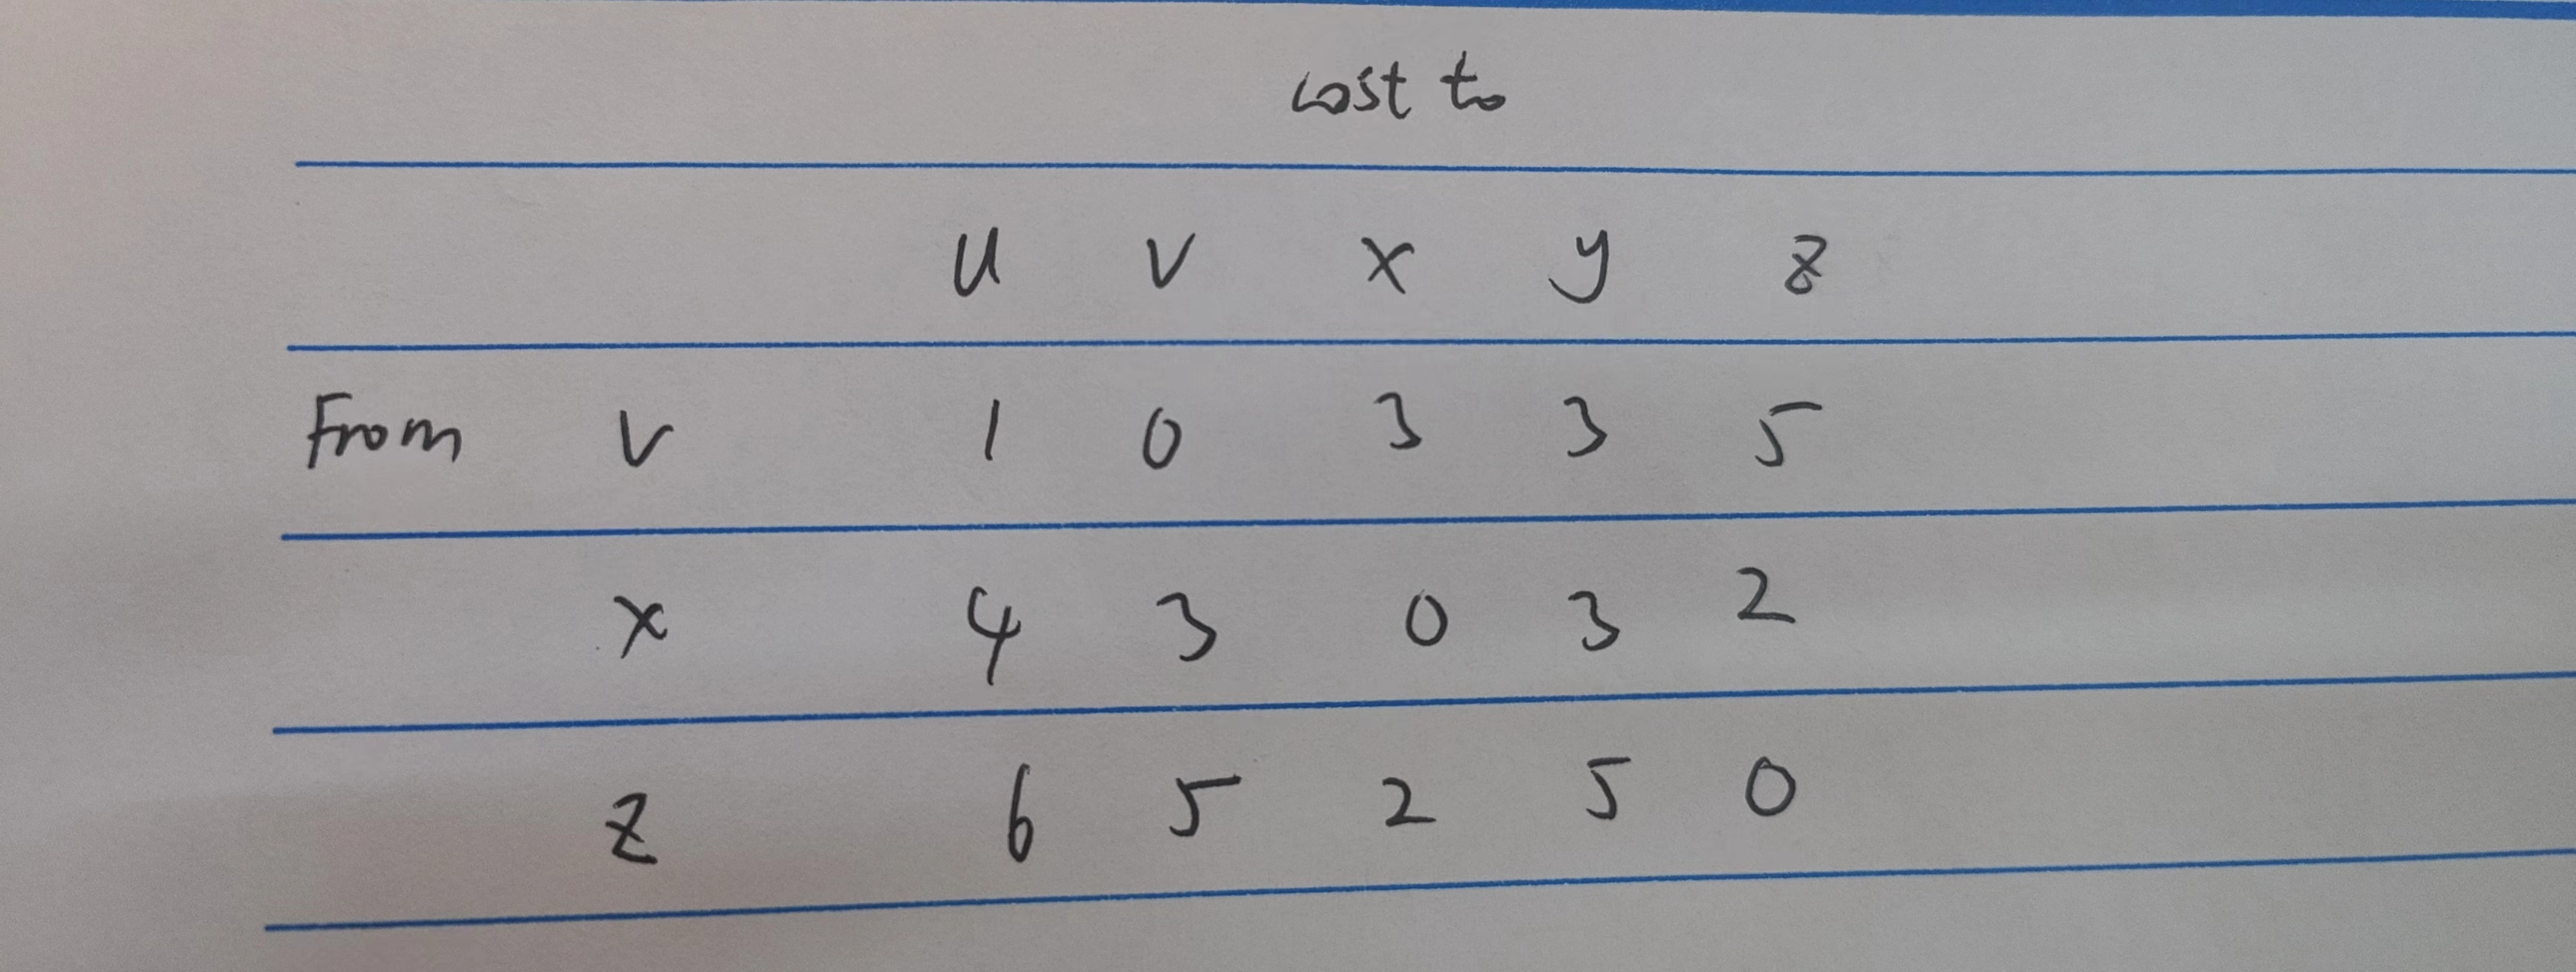 cost to
u v x y z
From v 1 0 3 3 5
x 4 3 0 3 2
z 6 5 2 5 0